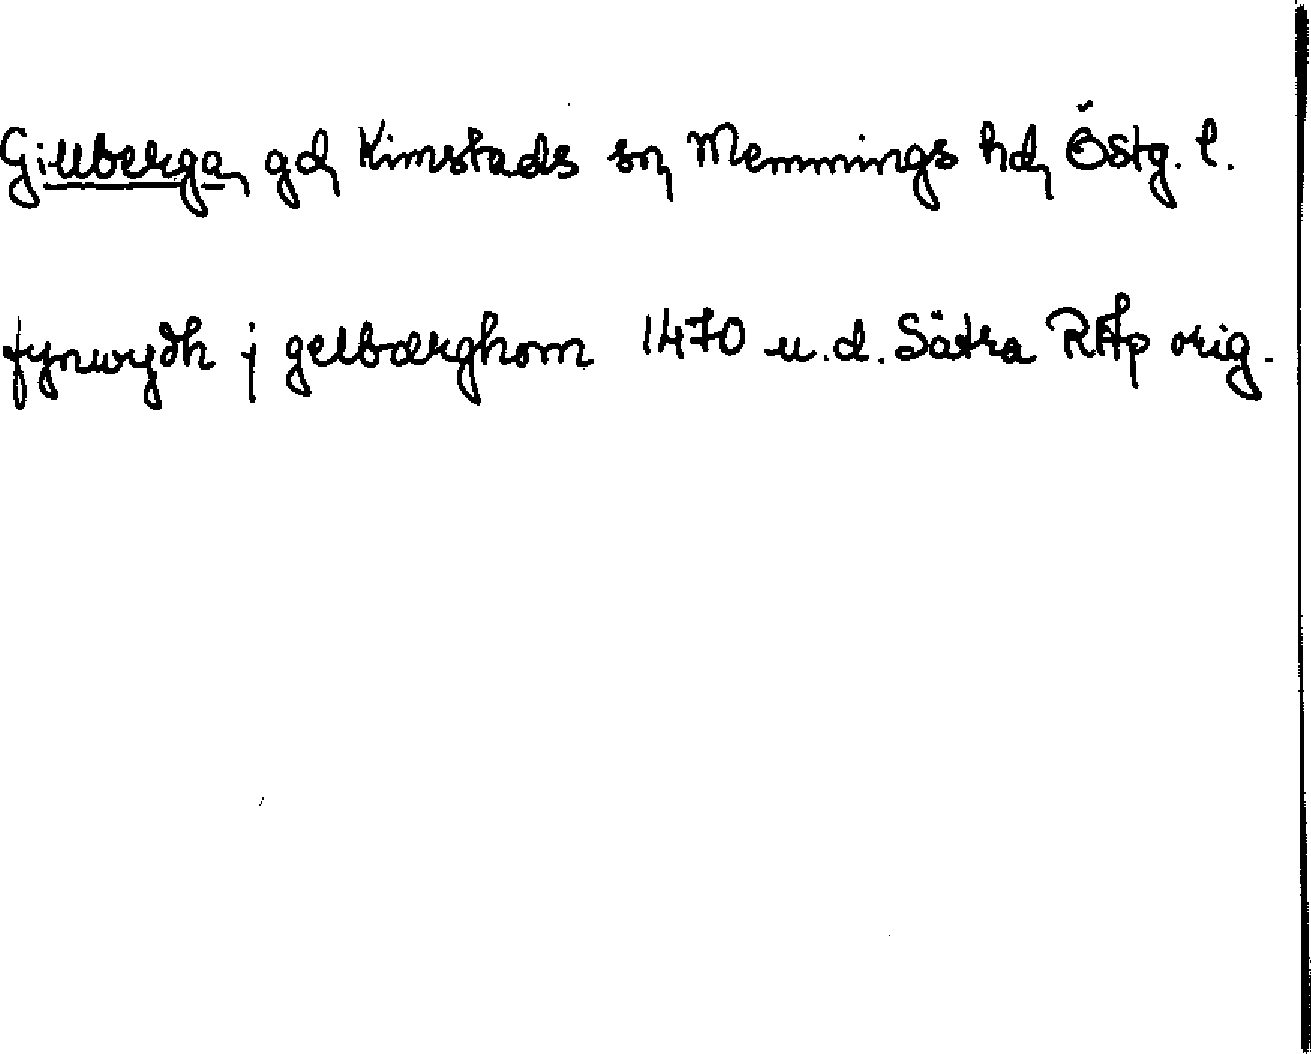 Gillberga, gd, Kimstads sn, Memmings hd, Östg. l.
fynwydh j gelbærghom 1470 u.d. Sätra RAp orig.